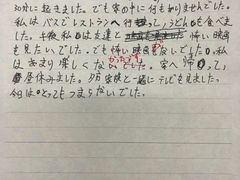 30分に起きました。でも家の中に何もありませんでした。
私はバスでレストランへ行って、うどんを食べま
した。午後私は友達と 怖い映画
を見たいでした。でも怖い映画がないでした。私
はあまり楽しくなかったです。家へ帰って、
昼休みました。夕方家族と一緒にテレビも見ました。
今日はとってもつまらないでした。